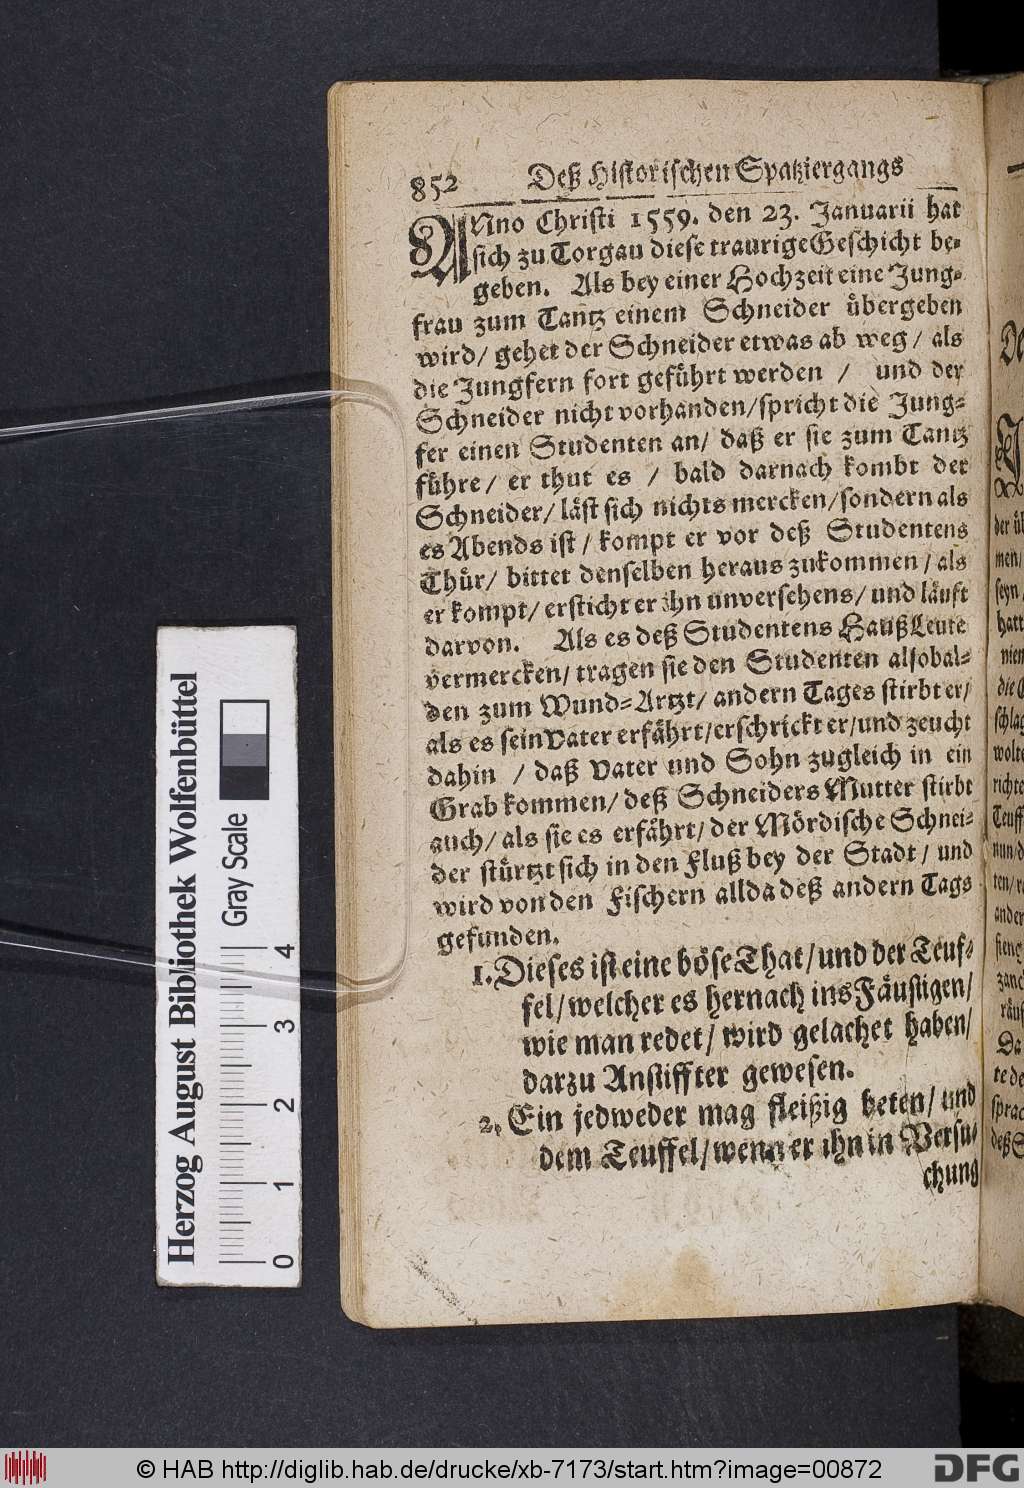 852 Deß Historischen Spatziergangs
ANno Christi 1559. den 23. Januarii hat
sich zu Torgau diese traurige Geschicht be-
geben. Als bey einer Hochzeit eine Jung-
frau zum Tantz einem Schneider übergeben
wird/ gehet der Schneider etwas ab weg/ als
die Jungfern fort geführt werden / und der
Schneider nicht vorhanden/ spricht die Jung-
fer einen Studenten an/ daß er sie zum Tantz
führe/ er thut es / bald darnach kombt der
Schneider/ läst sich nichts mercken/ sondern als
es Abends ist/ kompt er vor deß Studentens
Thür/ bittet denselben heraus zukommen/ als
er kompt/ ersticht er ihn unversehens/ und läuft
darvon. Als es deß Studentens Hauß Leute
vermercken/ tragen sie den Studenten alsobal-
den zum Wund-Artzt/ andern Tages stirbt er/
als es sein Vater erfährt/ erschrickt er/ und zeucht
dahin / daß Vater und Sohn zugleich in ein
Grab kommen/ deß Schneiders Mutter stirbt
auch/ als sie es erfährt/ der Mördische Schnei-
der stürtzt sich in den Fluß bey der Stadt/ und
wird von den Fischern allda deß andern Tags
gefunden.
1. Dieses ist eine böse That/ und der Teuf-
fel/ welcher es hernach ins Fäustigen/
wie man redet/ wird gelachet haben/
darzu Anstiffter gewesen.
2. Ein jedweder mag fleißig beten/ und
dem Teuffel/ wenn er ihn in Versu-
chung
Herzog August Bibliothek Wolfenbüttel
Gray Scale
0 1 2 3 4
der üb
men/
seyn/
hatt
nien
die G
schlag
wolte
richte
Teuff
nun/d
ten/ ra
ander
fieng
zanc
räuf
Da
te de
sprac
deß S
© HAB http://diglib.hab.de/drucke/xb-7173/start.htm?image=00872
DFG